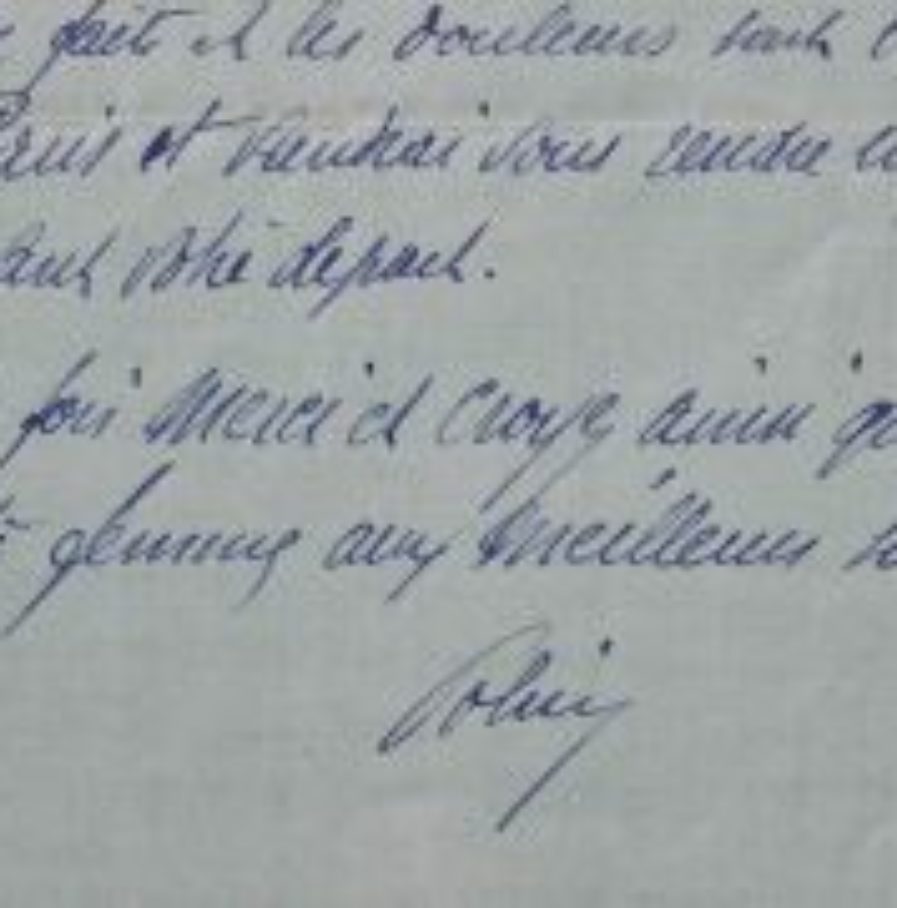 fait et les douleurs sont
Paris et viendrai vous rendre
avant votre départ.
fois merci et croyez ainsi
femme aux meilleurs